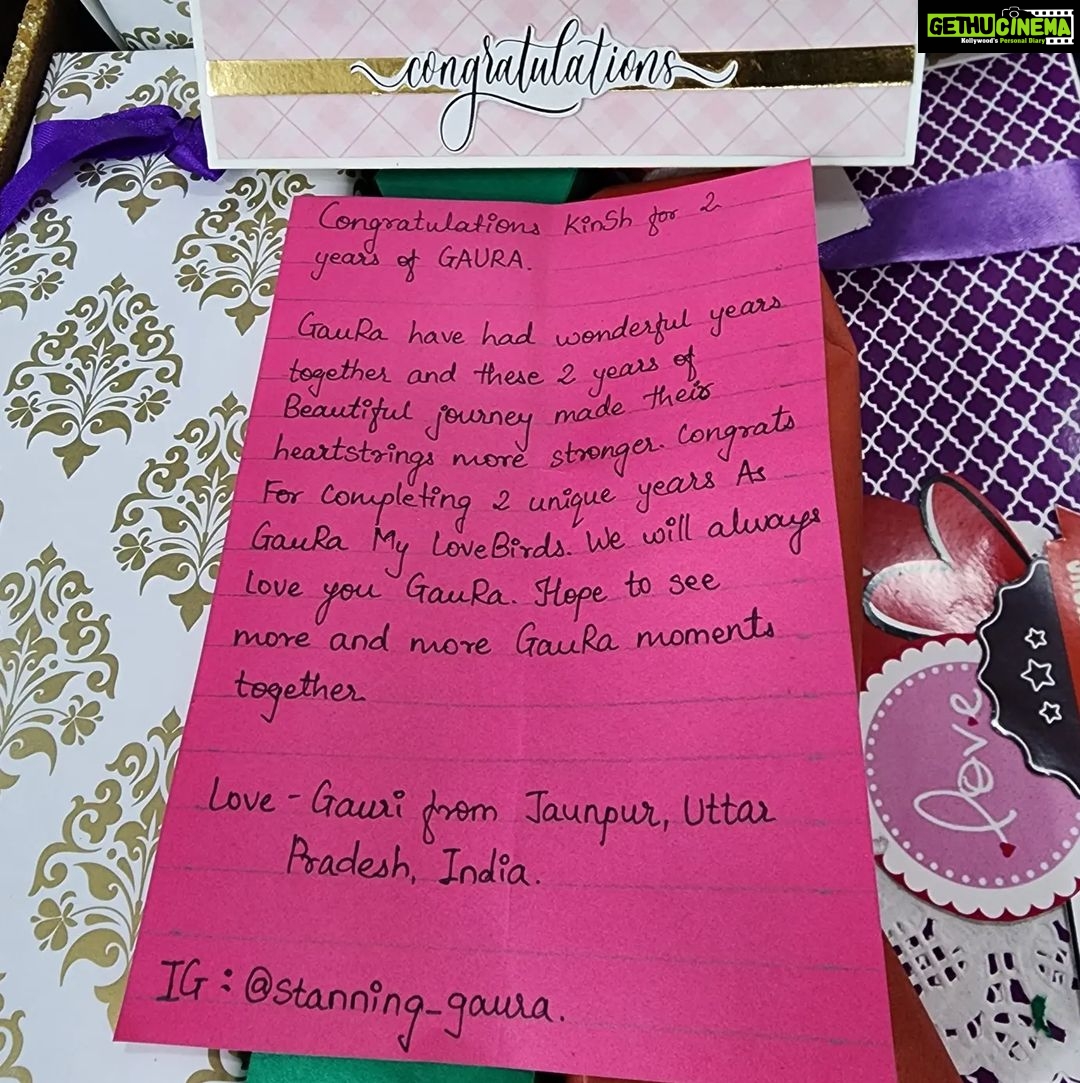 GETHUCINEMA
Kollywood's Personal Diary
congratulations
Congratulations KinSh for 2
years of GAURA.
GauRa have had wonderful years
together and these 2 years of
Beautiful journey made their
heartstrings more stronger. Congrats
For completing 2 unique years As
GauRa My LoveBirds. We will always
love you GauRa. Hope to see
more and more GauRa moments
together
Love - Gauri from Jaunpur, Uttar
Pradesh, India.
IG : @stanning_gaura.
love